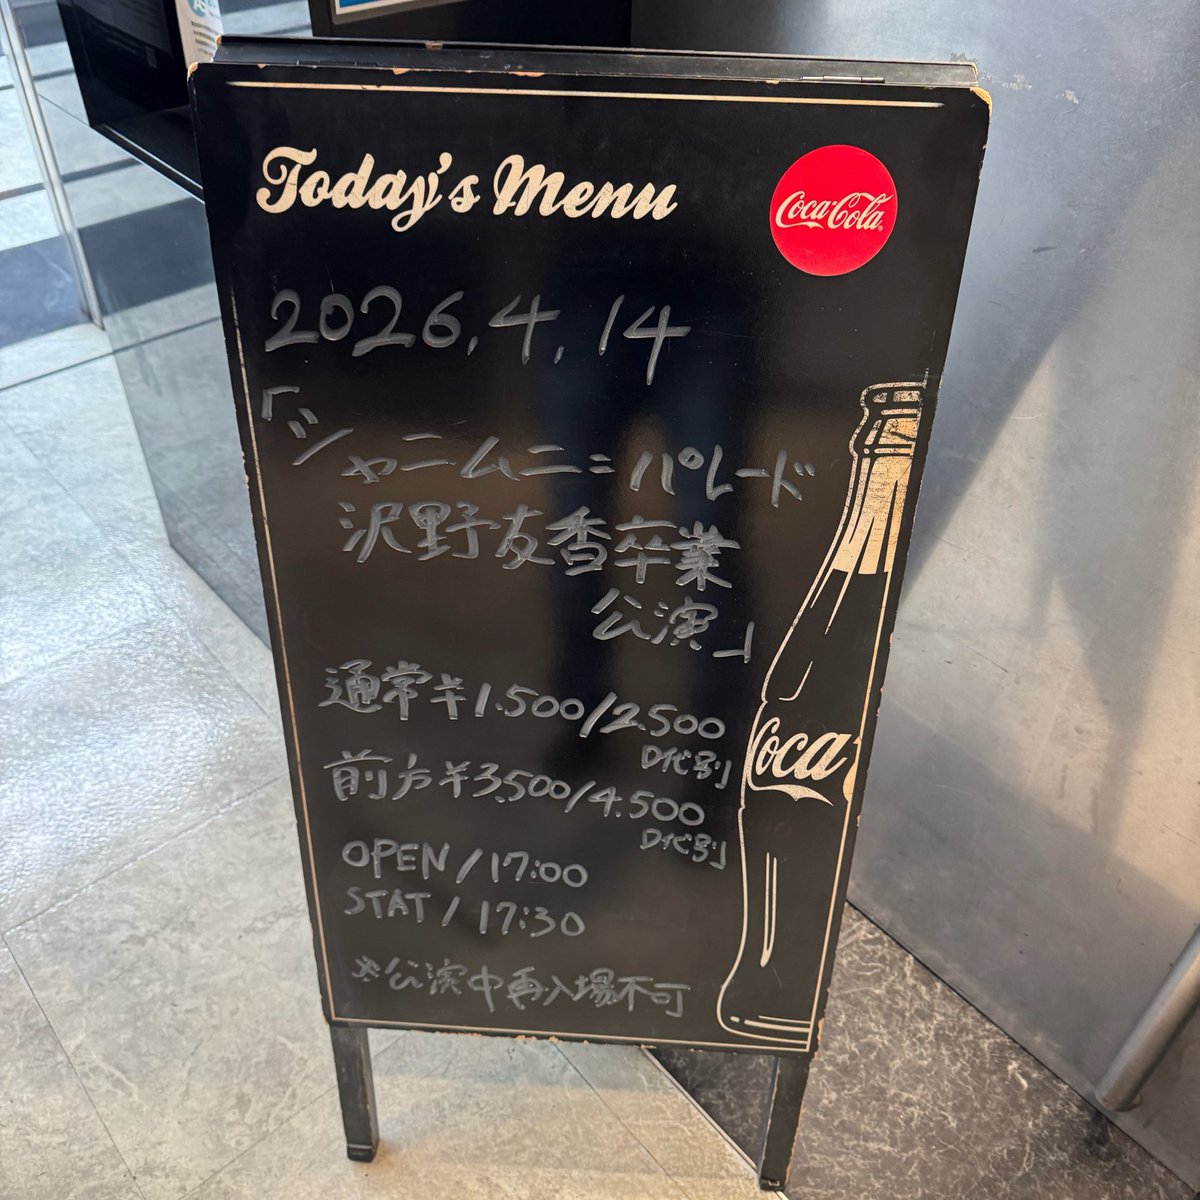 Today's Menu
Coca-Cola
2026.4.14
「シャムニ=パレード
沢野友香卒業
公演」
通常¥1.500/2.500
D代別
前方¥3.500/4.500
D代別
OPEN/17:00
STAT/17:30
※公演中再入場不可
Coca